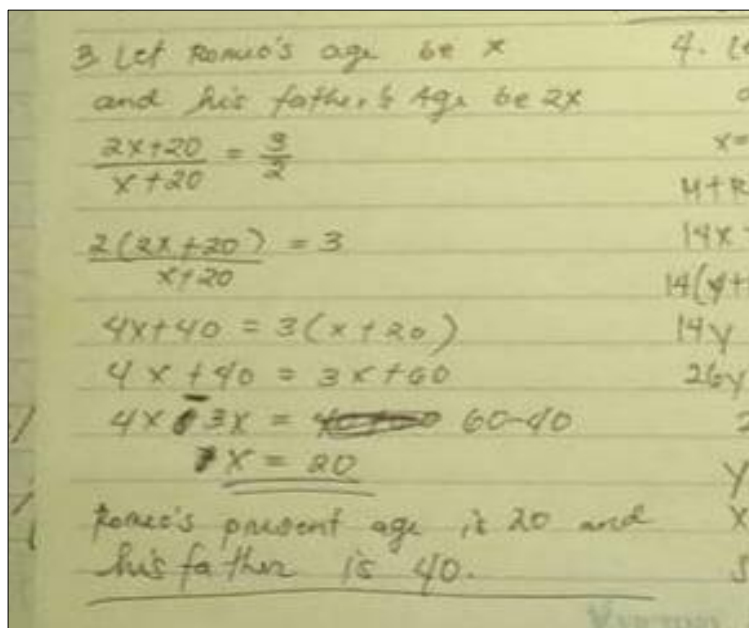 3 Let Romeo's age be x
and his father's Age be 2x
2x+20 / x+20 = 3/2
2(2x+20) / x+20 = 3
4x+40 = 3(x+20)
4x+40 = 3x+60
4x - 3x = 60-40
x = 20
Romeo's present age is 20 and
his father is 40.
4. Le
x=
M+R
14x
14(y+
14y
26y
2
y
x
S